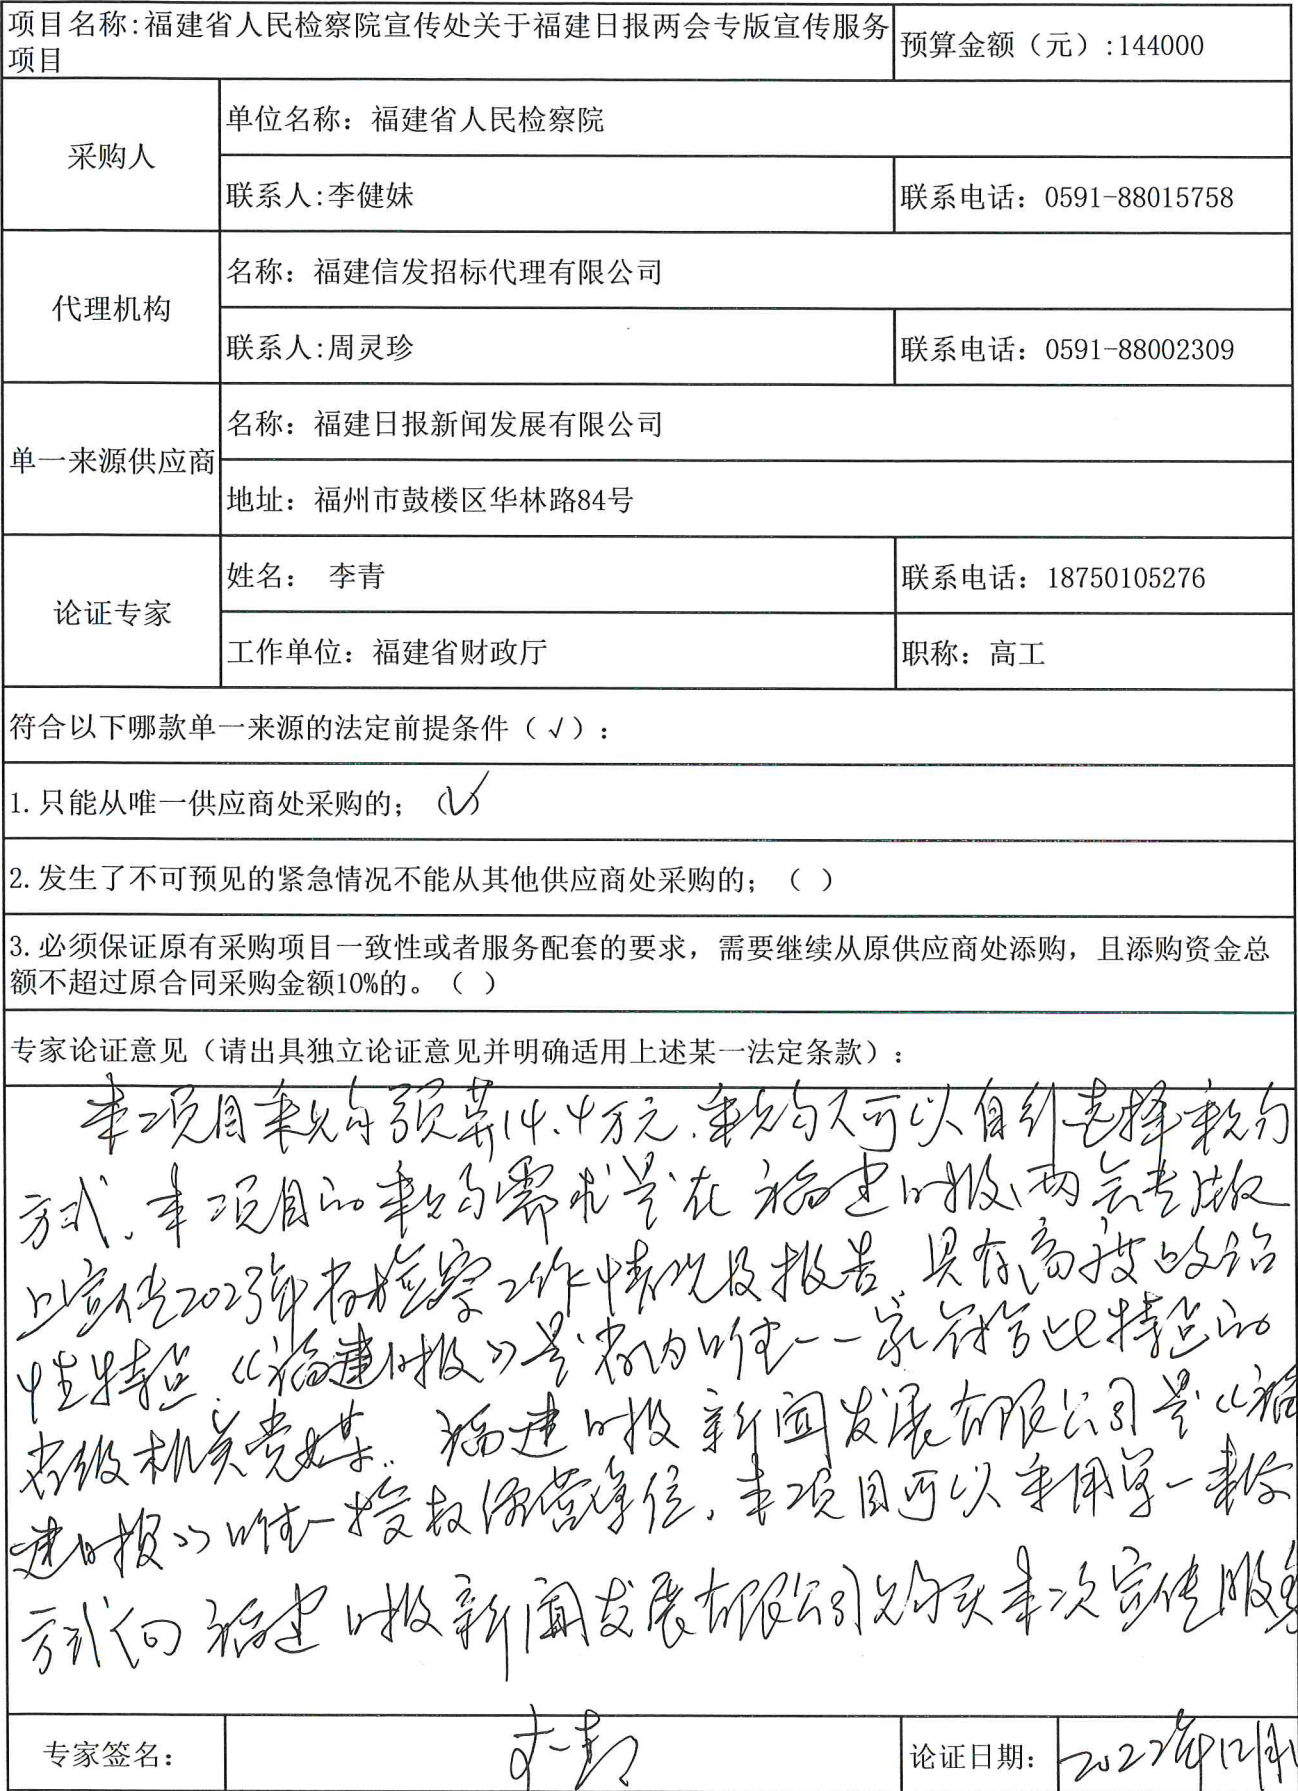 项目名称:福建省人民检察院宣传处关于福建日报两会专版宣传服务
项目
预算金额（元）:144000
采购人
单位名称：福建省人民检察院
联系人:李健妹
联系电话：0591-88015758
代理机构
名称：福建信发招标代理有限公司
联系人:周灵珍
联系电话：0591-88002309
单一来源供应商
名称：福建日报新闻发展有限公司
地址：福州市鼓楼区华林路84号
论证专家
姓名： 李青
联系电话：18750105276
工作单位：福建省财政厅
职称：高工
符合以下哪款单一来源的法定前提条件（√）：
1.只能从唯一供应商处采购的；（√）
2.发生了不可预见的紧急情况不能从其他供应商处采购的；（ ）
3.必须保证原有采购项目一致性或者服务配套的要求，需要继续从原供应商处添购，且添购资金总
额不超过原合同采购金额10%的。（ ）
专家论证意见（请出具独立论证意见并明确适用上述某一法定条款）：
本项目采购预算14.4万元，采购人可以自行选择采购
方式。本项目的采购需求是在福建日报两会专版
上宣传2023年省检察工作情况及报告，具有高度政治
性特点，《福建日报》是省内唯一一家符合此特点的
省级机关党媒。福建日报新闻发展有限公司是《福
建日报》唯一授权经营单位，本项目可以采用单一来源
方式向福建日报新闻发展有限公司购买本次宣传服务
专家签名：
李青
论证日期：
2022年12月